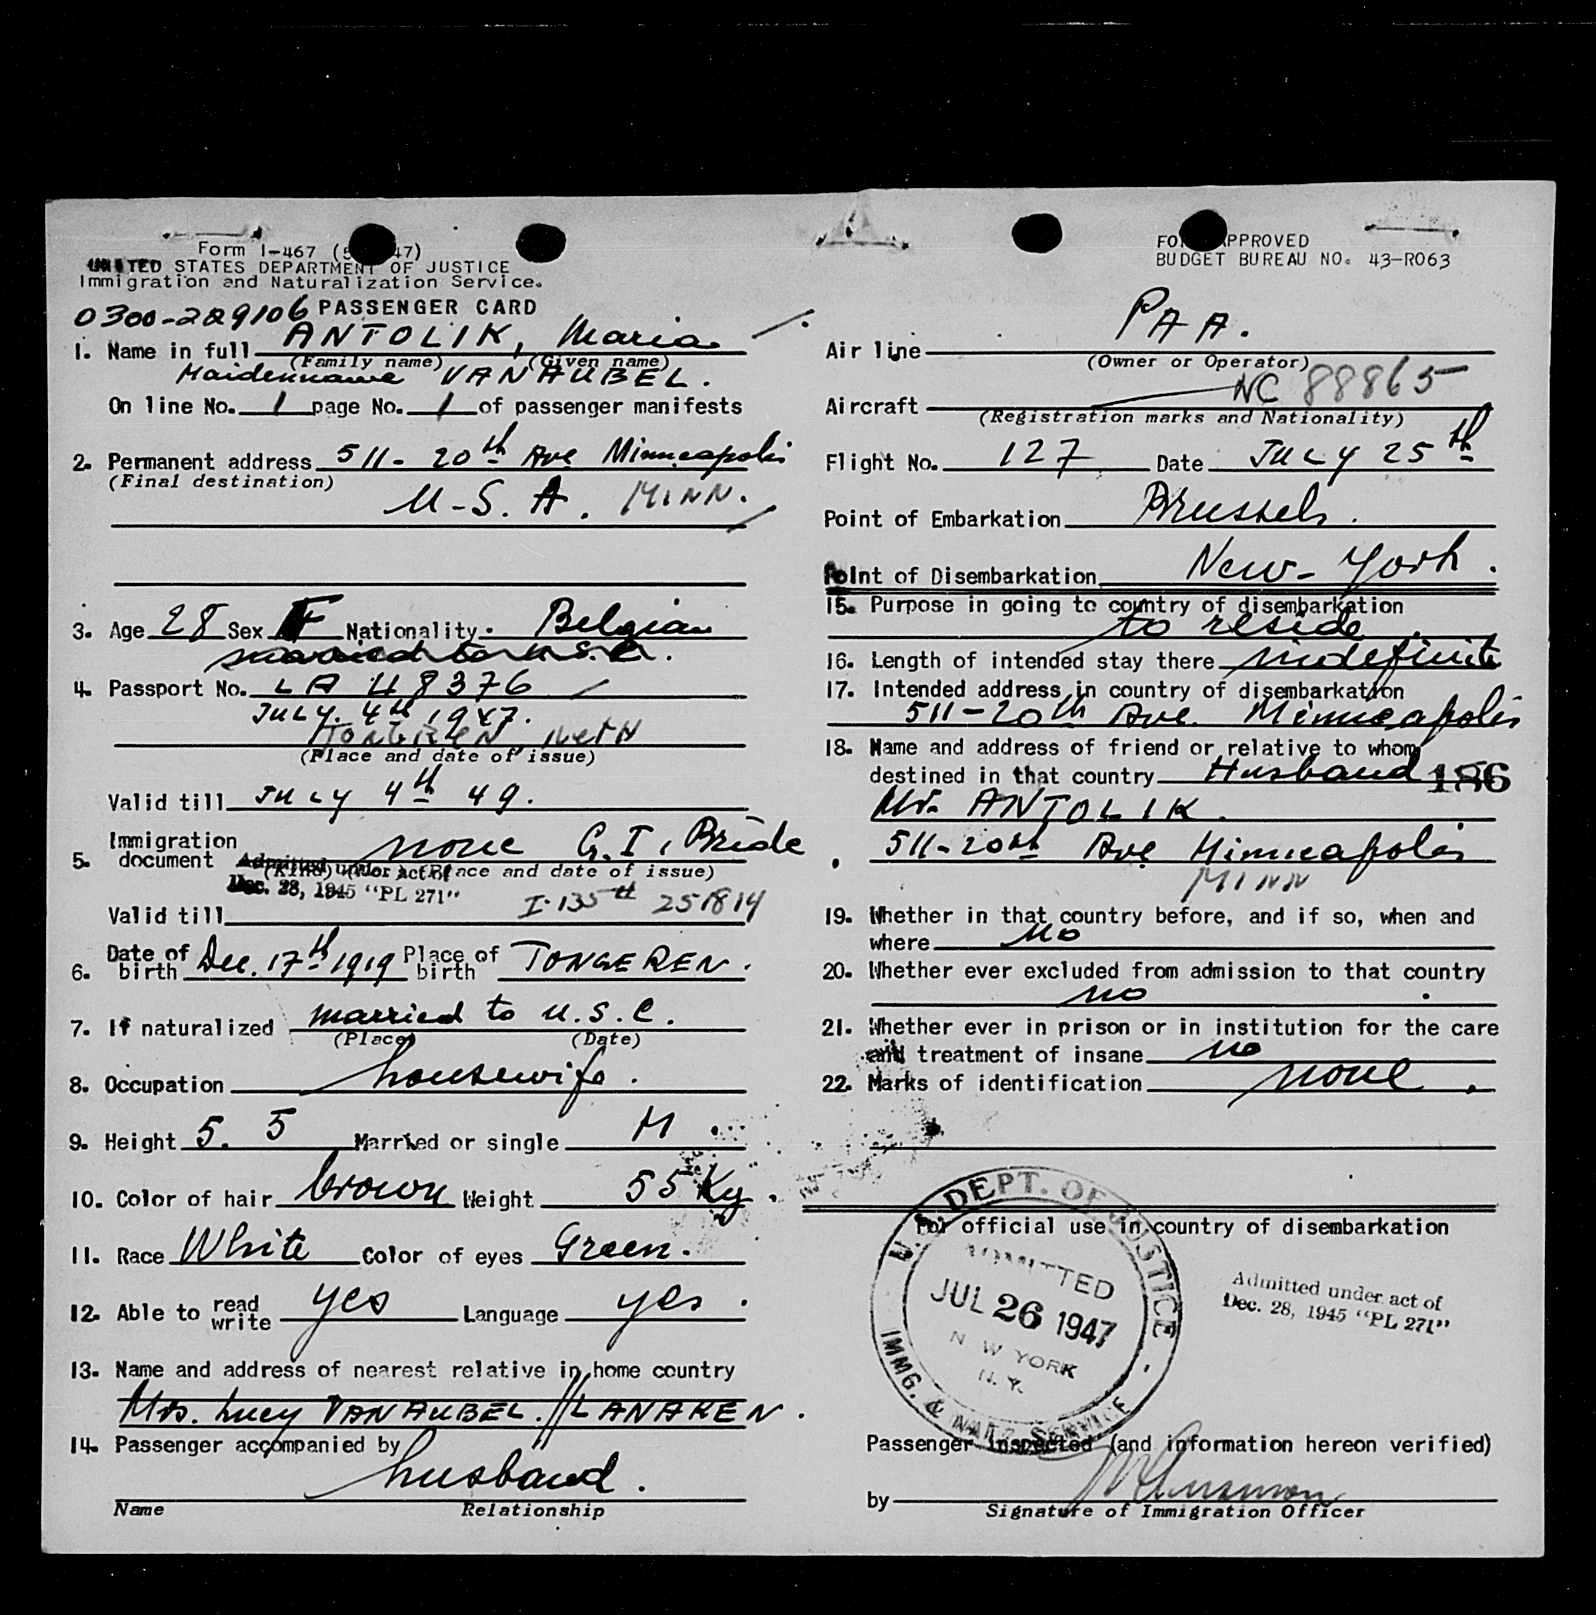 Form I-467 (5 47)
UNITED STATES DEPARTMENT OF JUSTICE
Immigration and Naturalization Service.
0300-229106 PASSENGER CARD
1. Name in full ANTOLIK, Maria
(Family name) (Given name)
Maidenname VANAUBEL.
On line No. 1 page No. 1 of passenger manifests
2. Permanent address 511- 20th Ave Minneapolis
(Final destination)
U-S. A. MINN.
3. Age 28 Sex F Nationality Belgian
married to U.S.C.
4. Passport No. LA 48376
JULY. 4th 1947.
TONGEREN
(Place and date of issue)
Valid till JULY 4th 49.
5. Immigration document none G.I. Bride
(Kind) (Place and date of issue)
Admitted under act of
Dec. 28, 1945 "PL 271"
I-135 251814
Valid till
6. Date of birth Dec. 17th 1919 Place of birth TONGEREN.
7. If naturalized married to U.S.C.
(Place) (Date)
8. Occupation housewife.
9. Height 5. 5 Married or single M
10. Color of hair brown Weight 55 Kg.
11. Race White Color of eyes Green.
12. Able to read write yes Language yes.
13. Name and address of nearest relative in home country
Mrs. Lucy VANAUBEL. // LANAKEN.
14. Passenger accompanied by
husband.
Name Relationship
FORM APPROVED
BUDGET BUREAU NO. 43-R063
Air line PAA.
(Owner or Operator)
Aircraft NC 88865
(Registration marks and Nationality)
Flight No. 127 Date JULY 25th
Point of Embarkation Brussels.
Point of Disembarkation New-York.
15. Purpose in going to country of disembarkation
to reside
16. Length of intended stay there indefinite
17. Intended address in country of disembarkation
511-20th Ave. Minneapolis
18. Name and address of friend or relative to whom
destined in that country Husband 186
Mr. ANTOLIK.
511-20th Ave Minneapolis
MINN
19. Whether in that country before, and if so, when and
where no
20. Whether ever excluded from admission to that country
no
21. Whether ever in prison or in institution for the care
and treatment of insane no
22. Marks of identification none.
For official use in country of disembarkation
U. S. DEPT. OF JUSTICE
ADMITTED
JUL 26 1947
N W YORK
N. Y.
IMMG. & NATZ. SERVICE
Admitted under act of
Dec. 28, 1945 "PL 271"
Passenger inspected (and information hereon verified)
by
Signature of Immigration Officer